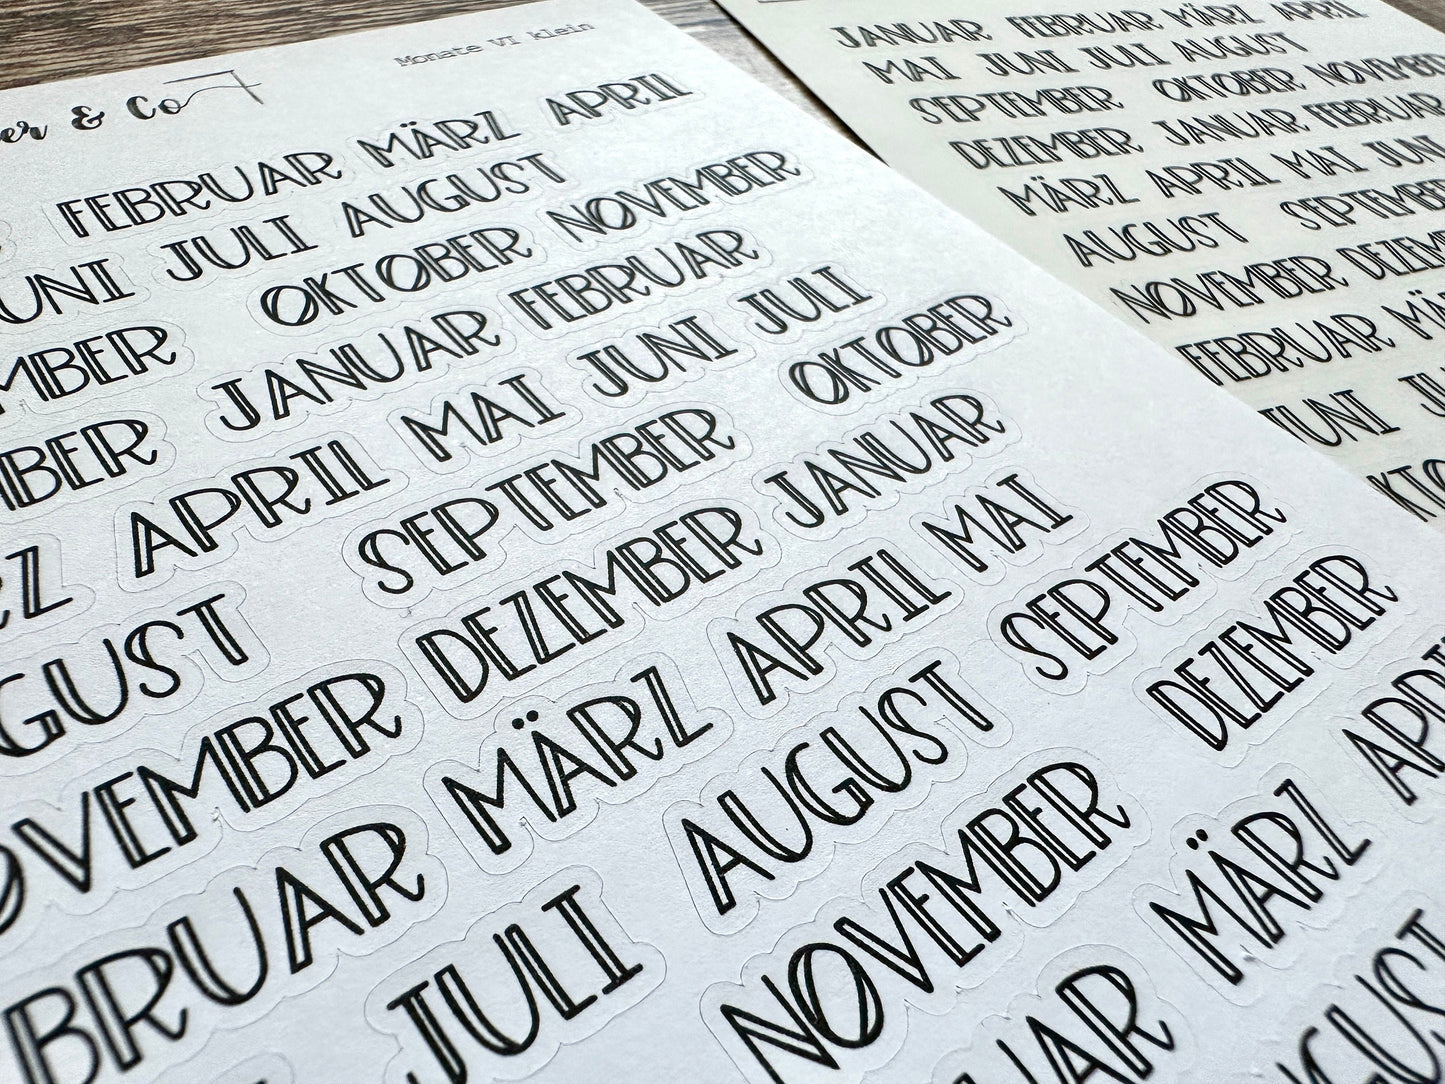 Monate VI klein
er & Co
FEBRUAR MÄRZ APRIL
UNI JULI AUGUST
MBER OKTOBER NOVEMBER
BER JANUAR FEBRUAR
RZ APRIL MAI JUNI JULI
GUST SEPTEMBER OKTOBER
OVEMBER DEZEMBER JANUAR
BRUAR MÄRZ APRIL MAI
JULI AUGUST SEPTEMBER
NOVEMBER DEZEMBER
UAR MÄRZ APRI
UGUS
JANUAR FEBRUAR MÄRZ APRIL
MAI JUNI JULI AUGUST
SEPTEMBER OKTOBER NOVEMBER
DEZEMBER JANUAR FEBRUAR
MÄRZ APRIL MAI JUNI
AUGUST SEPTEMBER
NOVEMBER DEZEM
FEBRUAR MÄ
JUNI JU
KTO